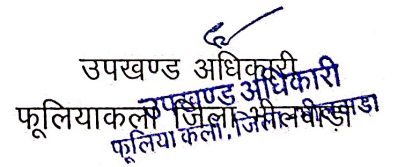 उपखण्ड अधिकारी
फूलियाकलां जिला भीलवाड़ा
उपखण्ड अधिकारी
फूलिया कलां, जिला भीलवाडा